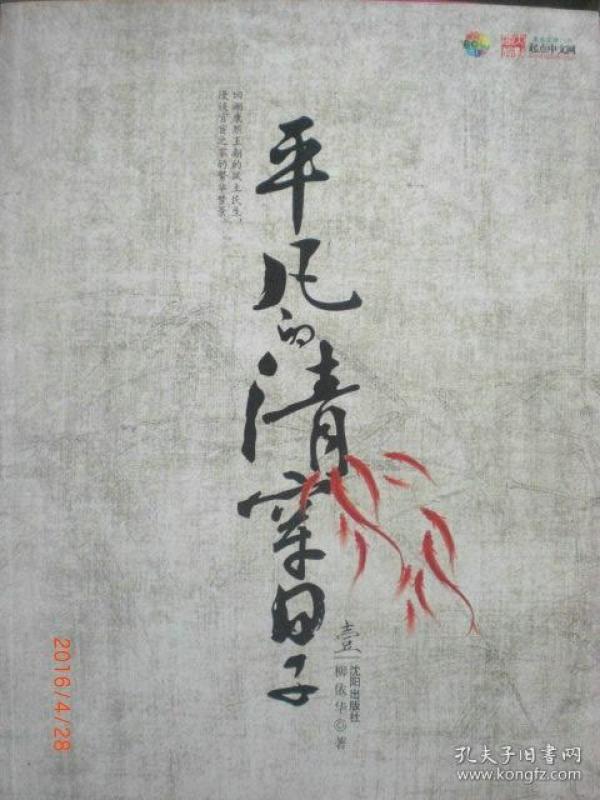 起点中文网
回溯康熙王朝的风土民生，
漫谈官宦之家的繁华梦景。
平凡的清穿日子
壹
柳依华◎著
沈阳出版社
2016/4/28
孔夫子旧書网
www.kongfz.com